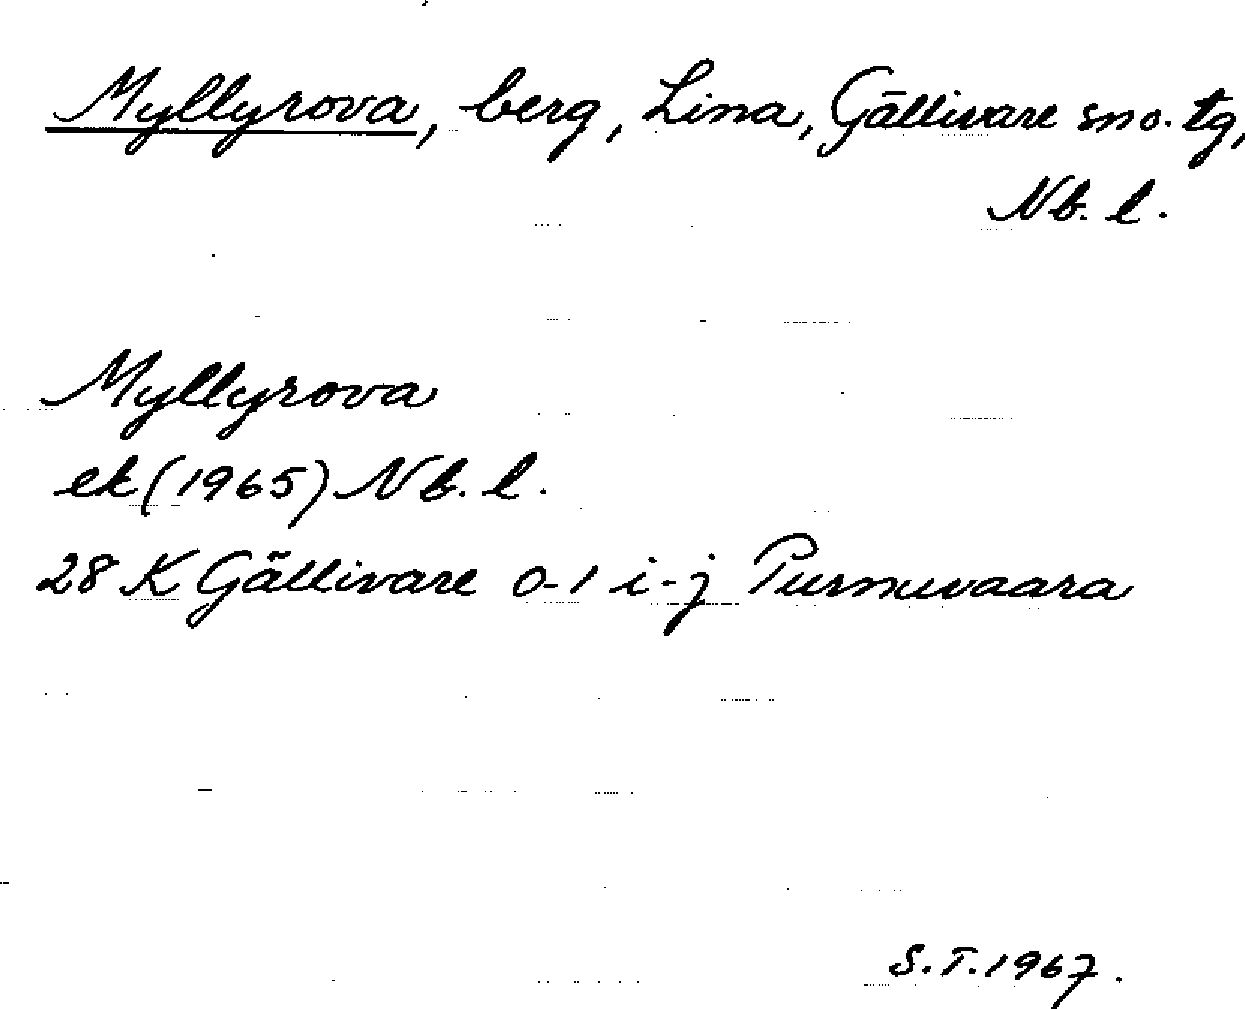 Myllyrova, berg, Lina, Gällivare sno. tg,
Nb. l.
Myllyrova
ek (1965) Nb. l.
28 K Gällivare 0-1 i-j Purnuvaara
S.T. 1967.